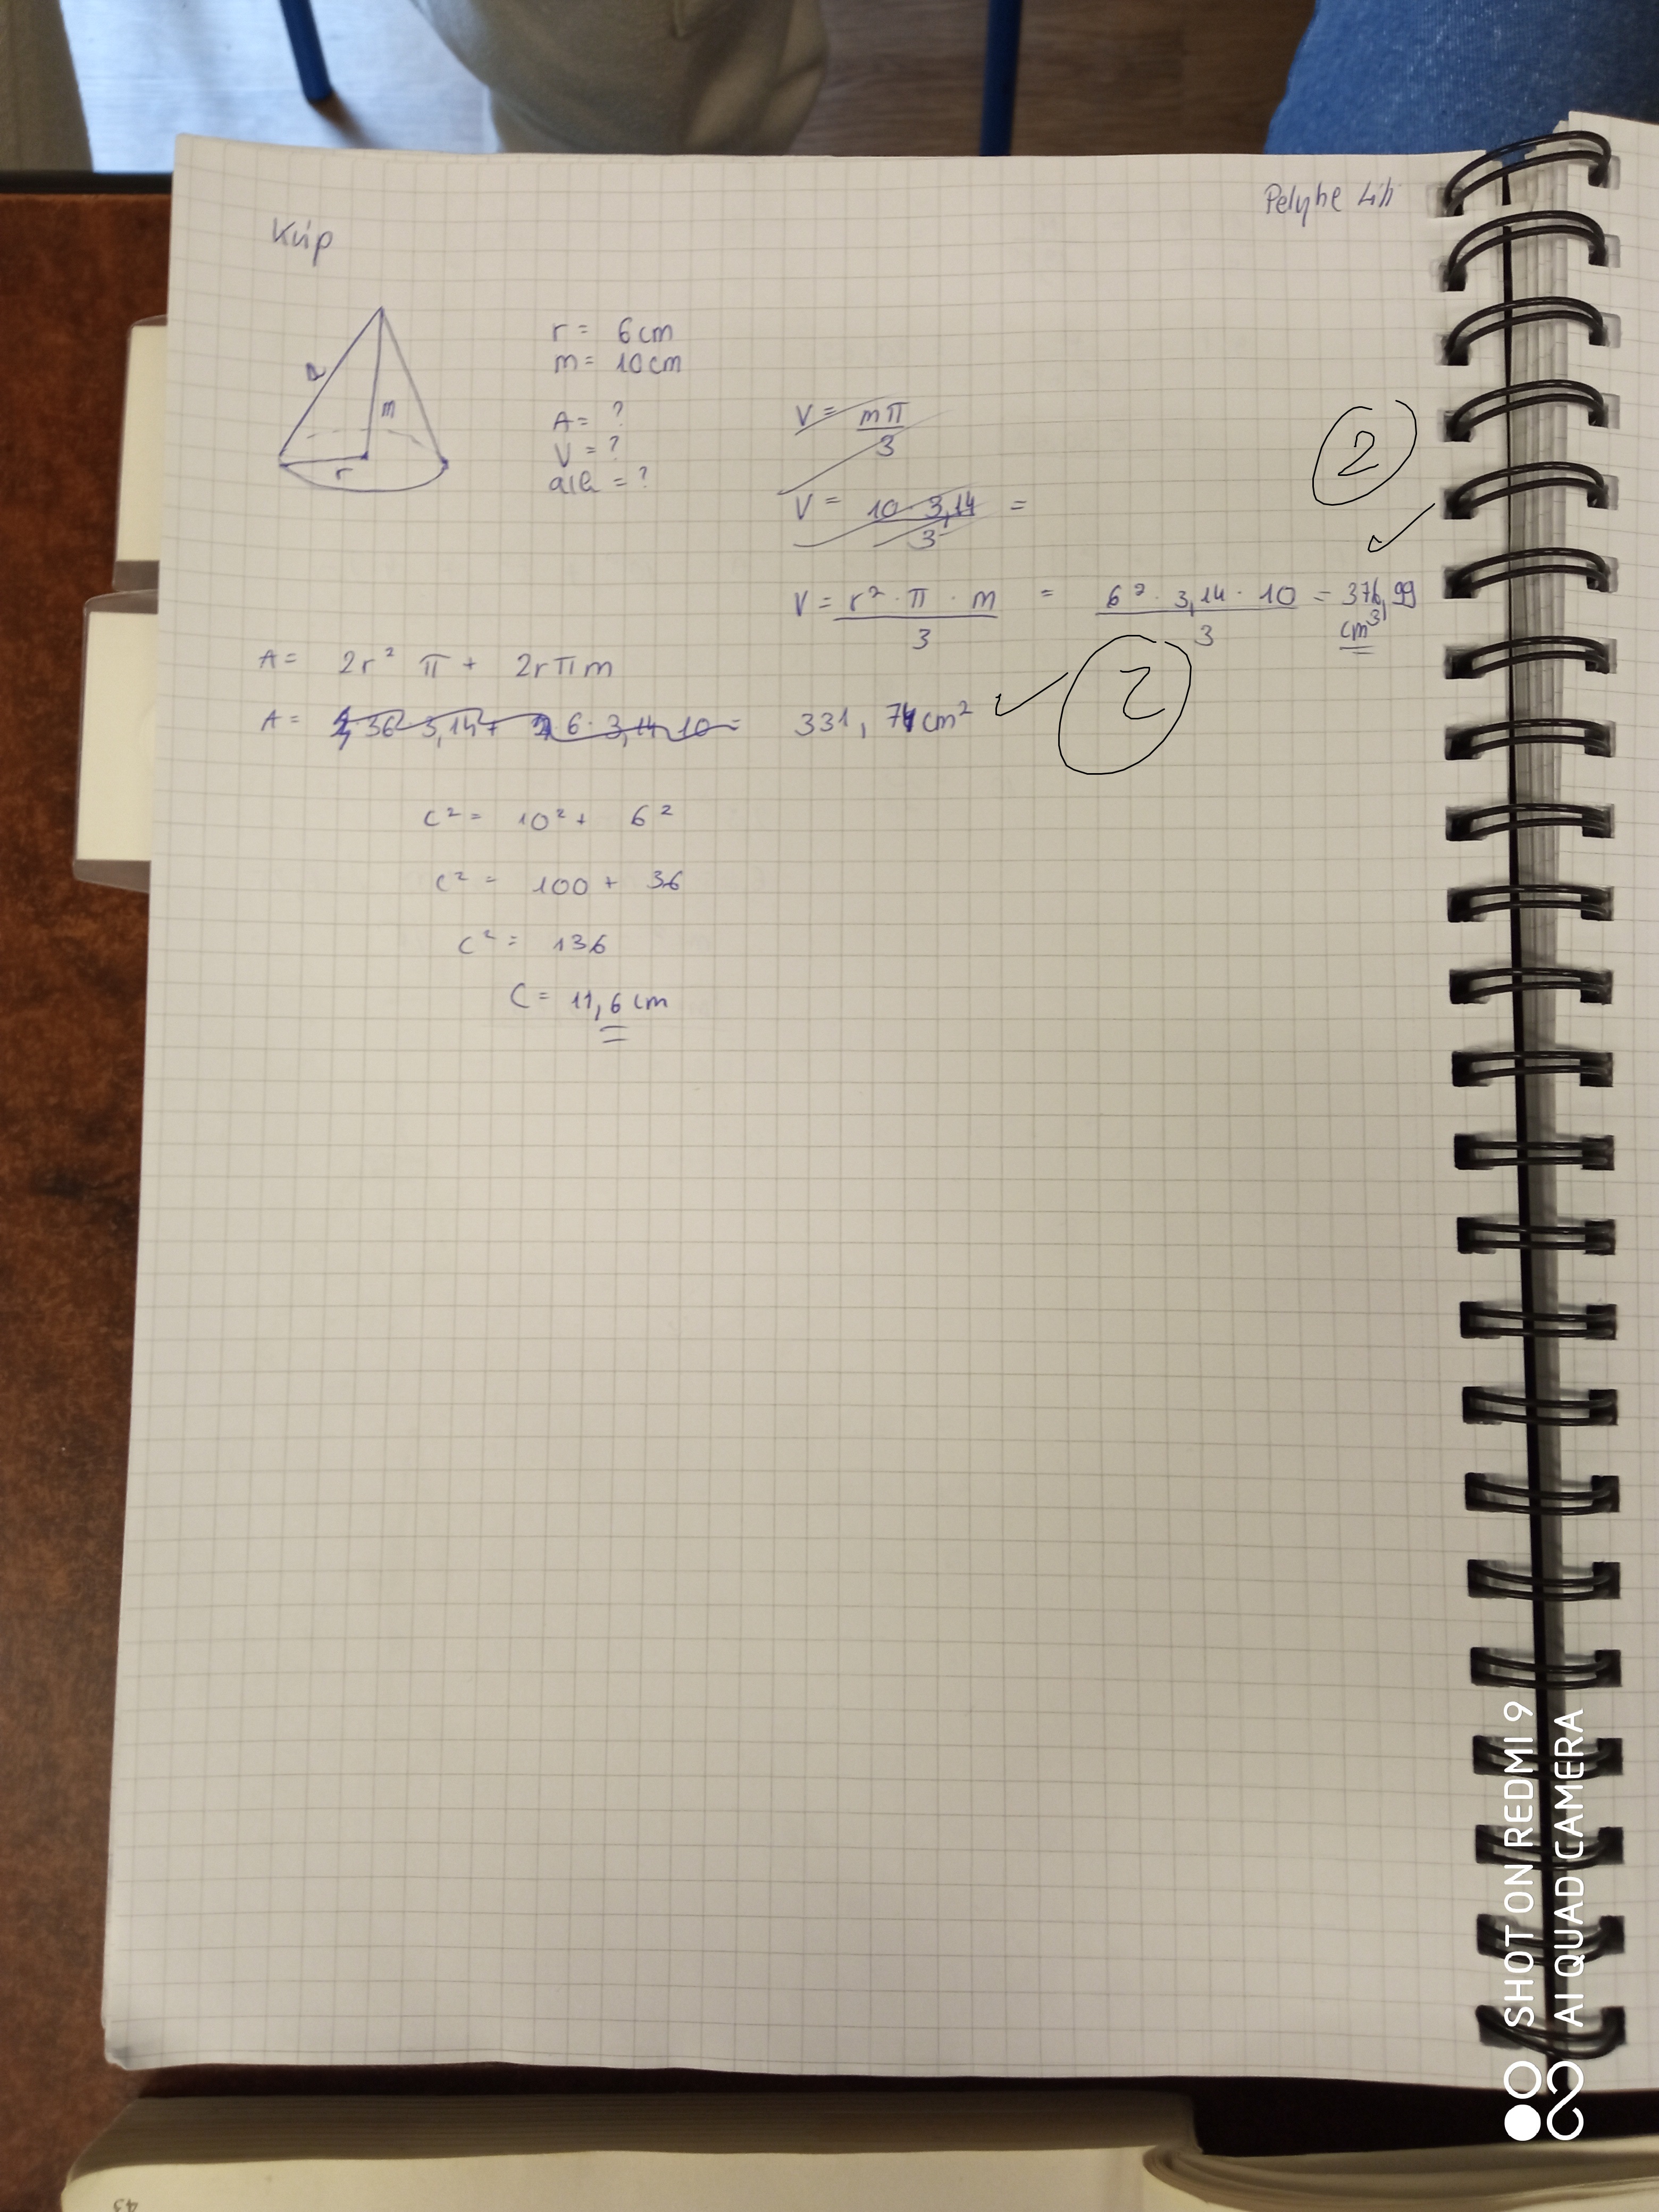 Pelyhe Lili
Kúp
a
m
r
r = 6 cm
m = 10 cm
A = ?
V = ?
alk = ?
V = mπ / 3
V = 10 · 3,14 / 3 =
2
V = r² · π · m / 3 = 6² · 3,14 · 10 / 3 = 376,99 cm³
A = 2r² π + 2rπm
A = 2 36 3,14 + 2 6 · 3,14 · 10 = 331, 71 cm²
2
c² = 10² + 6²
c² = 100 + 36
c² = 136
C = 11,6 cm
SHOT ON REDMI 9
AI QUAD CAMERA
43